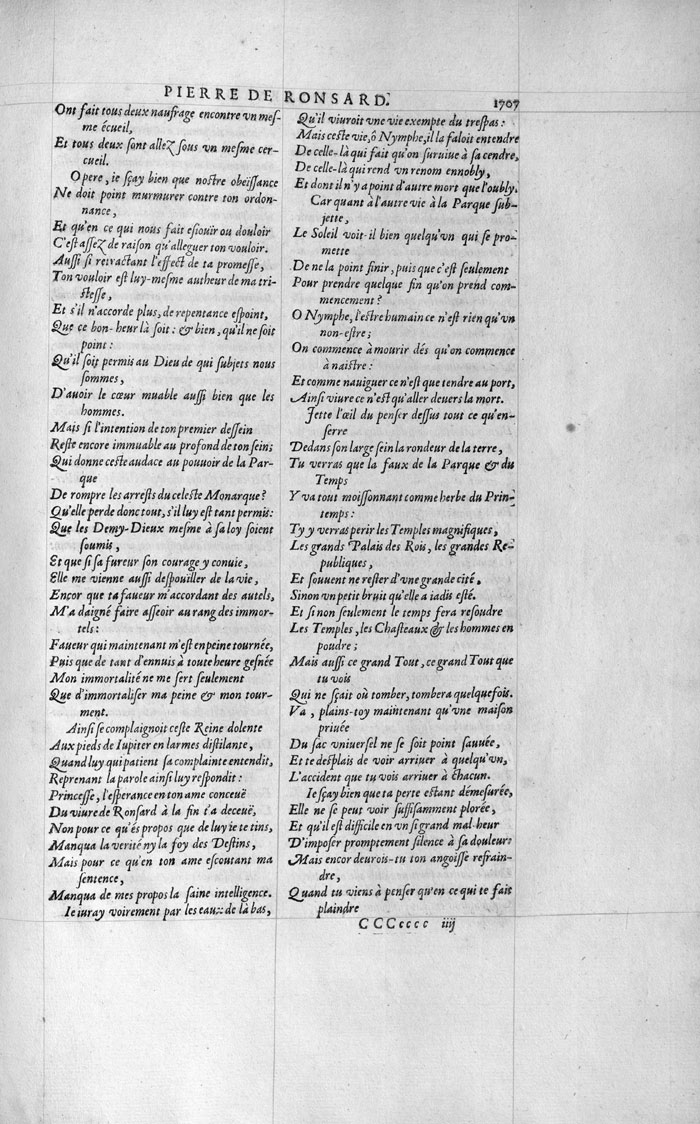 PIERRE DE RONSARD.
1707
Ont fait tous deux naufrage encontre vn mes-
me écueil,
Et tous deux sont allez sous vn mesme cer-
cueil.
O pere, ie sçay bien que nostre obeissance
Ne doit point murmurer contre ton ordon-
nance,
Et qu'en ce qui nous fait esiouir ou douloir
C'est assez de raison qu'alleguer ton vouloir.
Aussi si retractant l'effect de ta promesse,
Ton vouloir est luy-mesme autheur de ma tri-
stesse,
Et s'il n'accorde plus, de repentance espoint,
Que ce bon-heur là soit: & bien, qu'il ne soit
point:
Qu'il soit permis au Dieu de qui subjets nous
sommes,
D'auoir le cœur muable aussi bien que les
hommes.
Mais si l'intention de ton premier dessein
Reste encore immuable au profond de ton sein;
Qui donne ceste audace au pouuoir de la Par-
que
De rompre les arrests du celeste Monarque?
Qu'elle perde donc tout, s'il luy est tant permis:
Que les Demy-Dieux mesme à sa loy soient
soumis,
Et que si sa fureur son courage y conuie,
Elle me vienne aussi despouiller de la vie,
Encor que ta faueur m'accordant des autels,
M'a daigné faire asseoir au rang des immor-
tels:
Faueur qui maintenant m'est en peine tournée,
Puis que de tant d'ennuis à toute heure gesnée
Mon immortalité ne me sert seulement
Que d'immortaliser ma peine & mon tour-
ment.
Ainsi se complaignoit ceste Reine dolente
Aux pieds de Iupiter en larmes distilante,
Quand luy qui patient sa complainte entendit,
Reprenant la parole ainsi luy respondit:
Princesse, l'esperance en ton ame conceuë
Du viure de Ronsard à la fin t'a deceuë,
Non pour ce qu'és propos que de luy ie te tins,
Manqua la verité ny la foy des Destins,
Mais pour ce qu'en ton ame escoutant ma
sentence,
Manqua de mes propos la saine intelligence.
Ie iuray voirement par les eaux de là bas,
Qu'il viuroit vne vie exempte du trespas:
Mais ceste vie, ô Nymphe, il la faloit entendre
De celle-là qui fait qu'on suruiue à sa cendre,
De celle-là qui rend vn renom ennobly,
Et dont il n'y a point d'autre mort que l'oubly.
Car quant à l'autre vie à la Parque sub-
jette,
Le Soleil voit-il bien quelqu'vn qui se pro-
mette
De ne la point finir, puis que c'est seulement
Pour prendre quelque fin qu'on prend com-
mencement?
O Nymphe, l'estre humain ce n'est rien qu'vn
non-estre;
On commence à mourir dés qu'on commence
à naistre:
Et comme nauiguer ce n'est que tendre au port,
Ainsi viure ce n'est qu'aller deuers la mort.
Jette l'œil du penser dessus tout ce qu'en-
serre
Dedans son large sein la rondeur de la terre,
Tu verras que la faux de la Parque & du
Temps
Y va tout moissonnant comme herbe du Prin-
temps:
Ty y verras perir les Temples magnifiques,
Les grands Palais des Rois, les grandes Re-
publiques,
Et souuent ne rester d'vne grande cité,
Sinon vn petit bruit qu'elle a iadis esté.
Et si non seulement le temps fera resoudre
Les Temples, les Chasteaux & les hommes en
poudre;
Mais aussi ce grand Tout, ce grand Tout que
tu vois
Qui ne sçait où tomber, tombera quelquefois.
Va, plains-toy maintenant qu'vne maison
priuée
Du sac vniuersel ne se soit point sauuée,
Et te desplais de voir arriuer à quelqu'vn,
L'accident que tu vois arriuer à chacun.
Ie sçay bien que ta perte estant démesurée,
Elle ne se peut voir suffisamment plorée,
Et qu'il est difficile en vn si grand mal-heur
D'imposer promptement silence à sa douleur:
Mais encor deurois-tu ton angoisse refrain-
dre,
Quand tu viens à penser qu'en ce qui te fait
plaindre
CCCcccc iiij